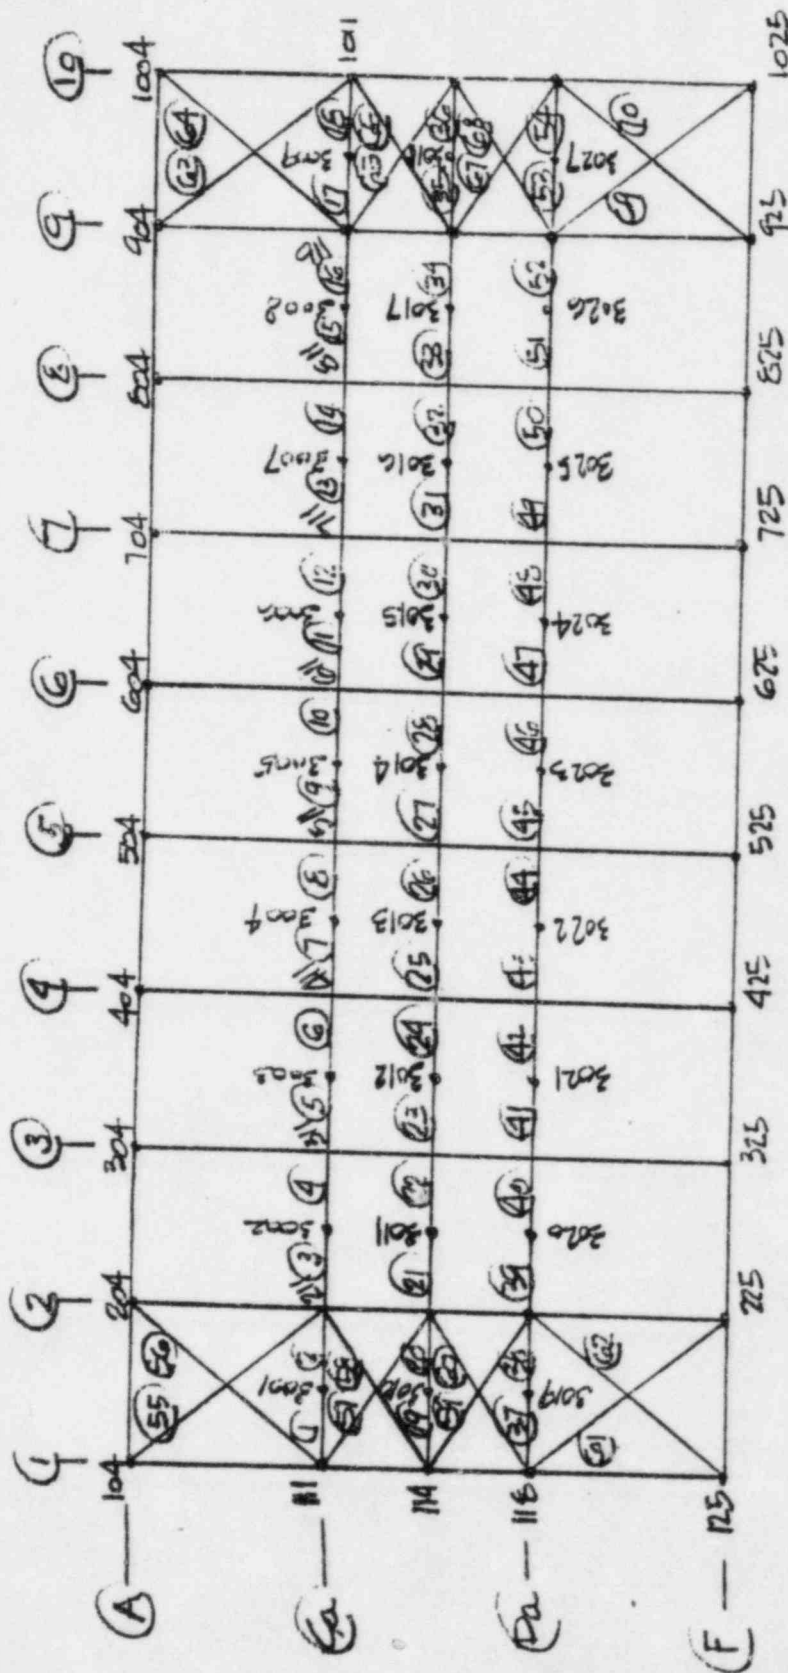 1 2 3 4 5 6 7 8 9 10
A 104 204 304 404 504 604 704 804 904 1004
55 56 63 64
111 211 711 811 1011
1 3 4 5 6 7 8 9 10 11 12 13 14 15 16 17 18
3001 3002 3003 3004 3005 3006 3007 3008 3009
57 58 65 66
114 19 20 21 22 23 24 25 26 27 28 29 30 31 32 33 34 35 36
3011 3012 3013 3014 3015 3016 3017
59 60 67 68
Da 118 37 38 39 40 41 42 43 44 45 46 47 48 49 50 51 52 53 54
3019 3020 3021 3022 3023 3024 3025 3026 3027
61 62 69 70
F 125 225 325 425 525 625 725 825 925 1025